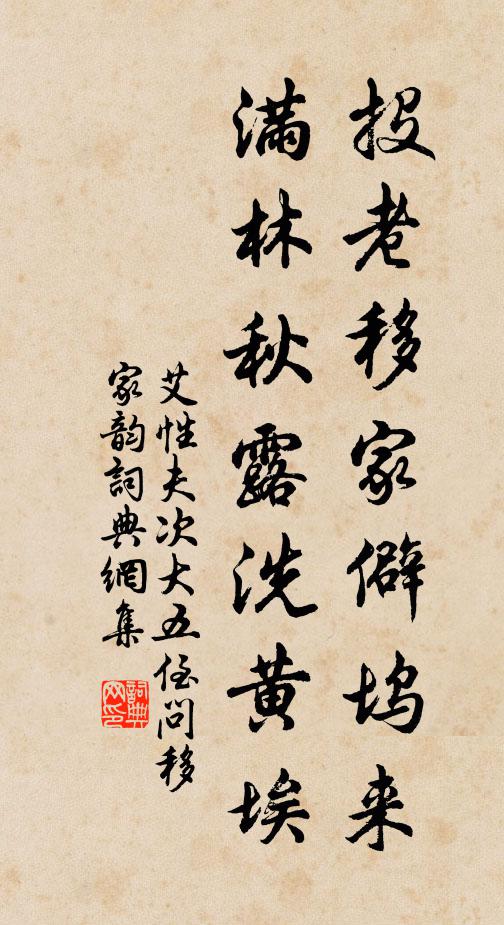 投老移家僻坞来
满林秋露洗黄埃
艾性夫次大五侄问移
家韵词典網集
詞典
网印